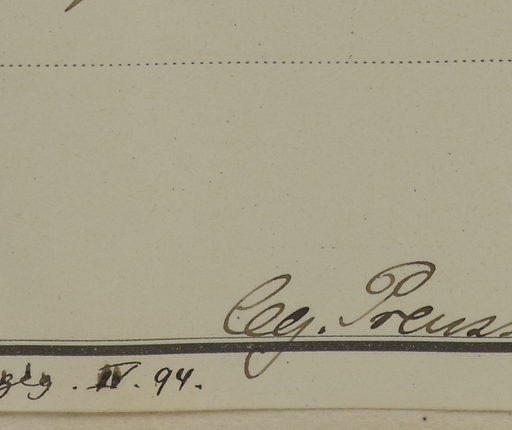 leg. Preuss
. IV. 94.